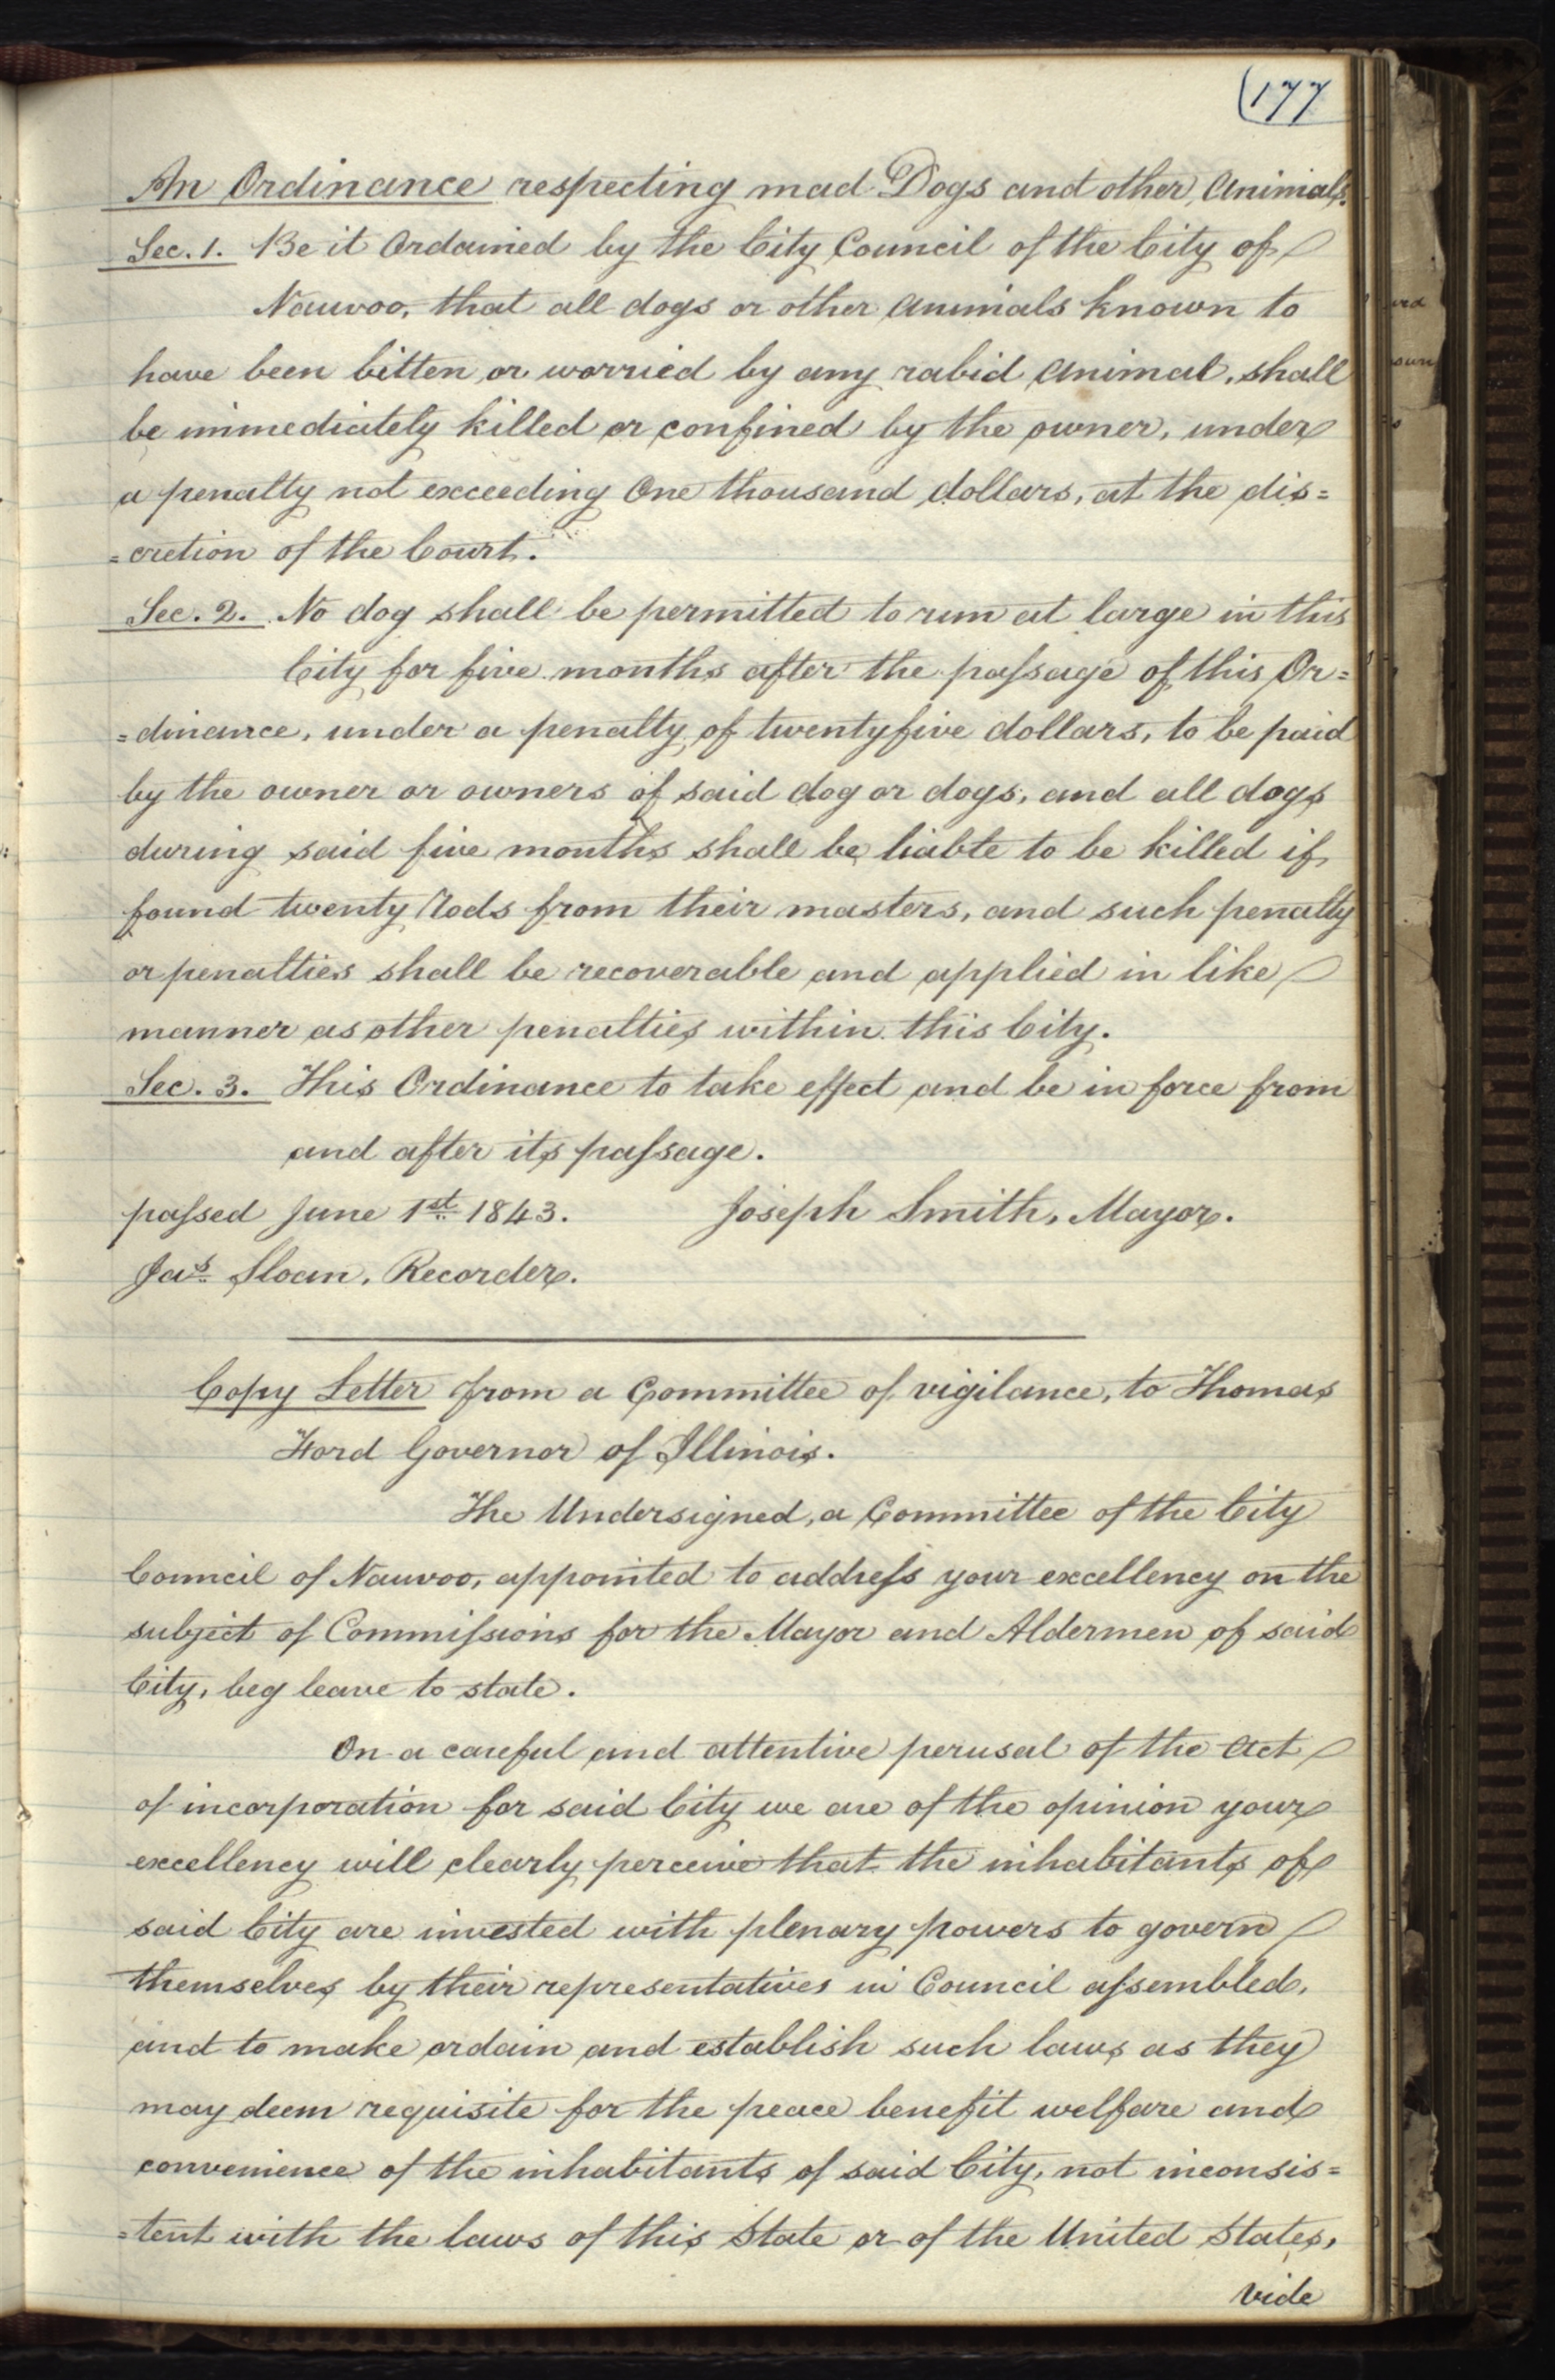 (177
An Ordinance respecting mad Dogs and other Animals.
Sec. 1. Be it Ordained by the City Council of the City of
Nauvoo, that all dogs or other Animals known to
have been bitten or worried by any rabid Animal, shall
be immediately killed or confined by the owner, under
a penalty not exceeding One thousand dollars, at the dis=
=cretion of the Court.
Sec. 2. No dog shall be permitted to run at large in this
City for five months after the paſsage of this Or=
=dinance, under a penalty of twentyfive dollars, to be paid
by the owner or owners of said dog or dogs, and all dogs
during said five months shall be liable to be killed if
found twenty Rods from their masters, and such penalty
or penalties shall be recoverable and applied in like
manner as other penalties within this City.
Sec. 3. This Ordinance to take effect and be in force from
and after its paſsage.
paſsed June 1st. 1843. Joseph Smith, Mayor.
Jas. Sloan, Recorder.
Copy Letter from a Committee of vigilance, to Thomas
Ford Governor of Illinois.
The Undersigned, a Committee of the City
Council of Nauvoo, appointed to addreſs your excellency on the
subject of Commiſsions for the Mayor and Aldermen of said
City, beg leave to state.
On a careful and attentive perusal of the Act
of incorporation for said City we are of the opinion your
excellency will clearly perceive that the inhabitants of
said City are invested with plenary powers to govern
themselves by their representatives in Council aſsembled,
and to make ordain and establish such laws as they
may deem requisite for the peace benefit welfare and
convenience of the inhabitants of said City, not inconsis=
=tent with the laws of this State or of the United States,
vide